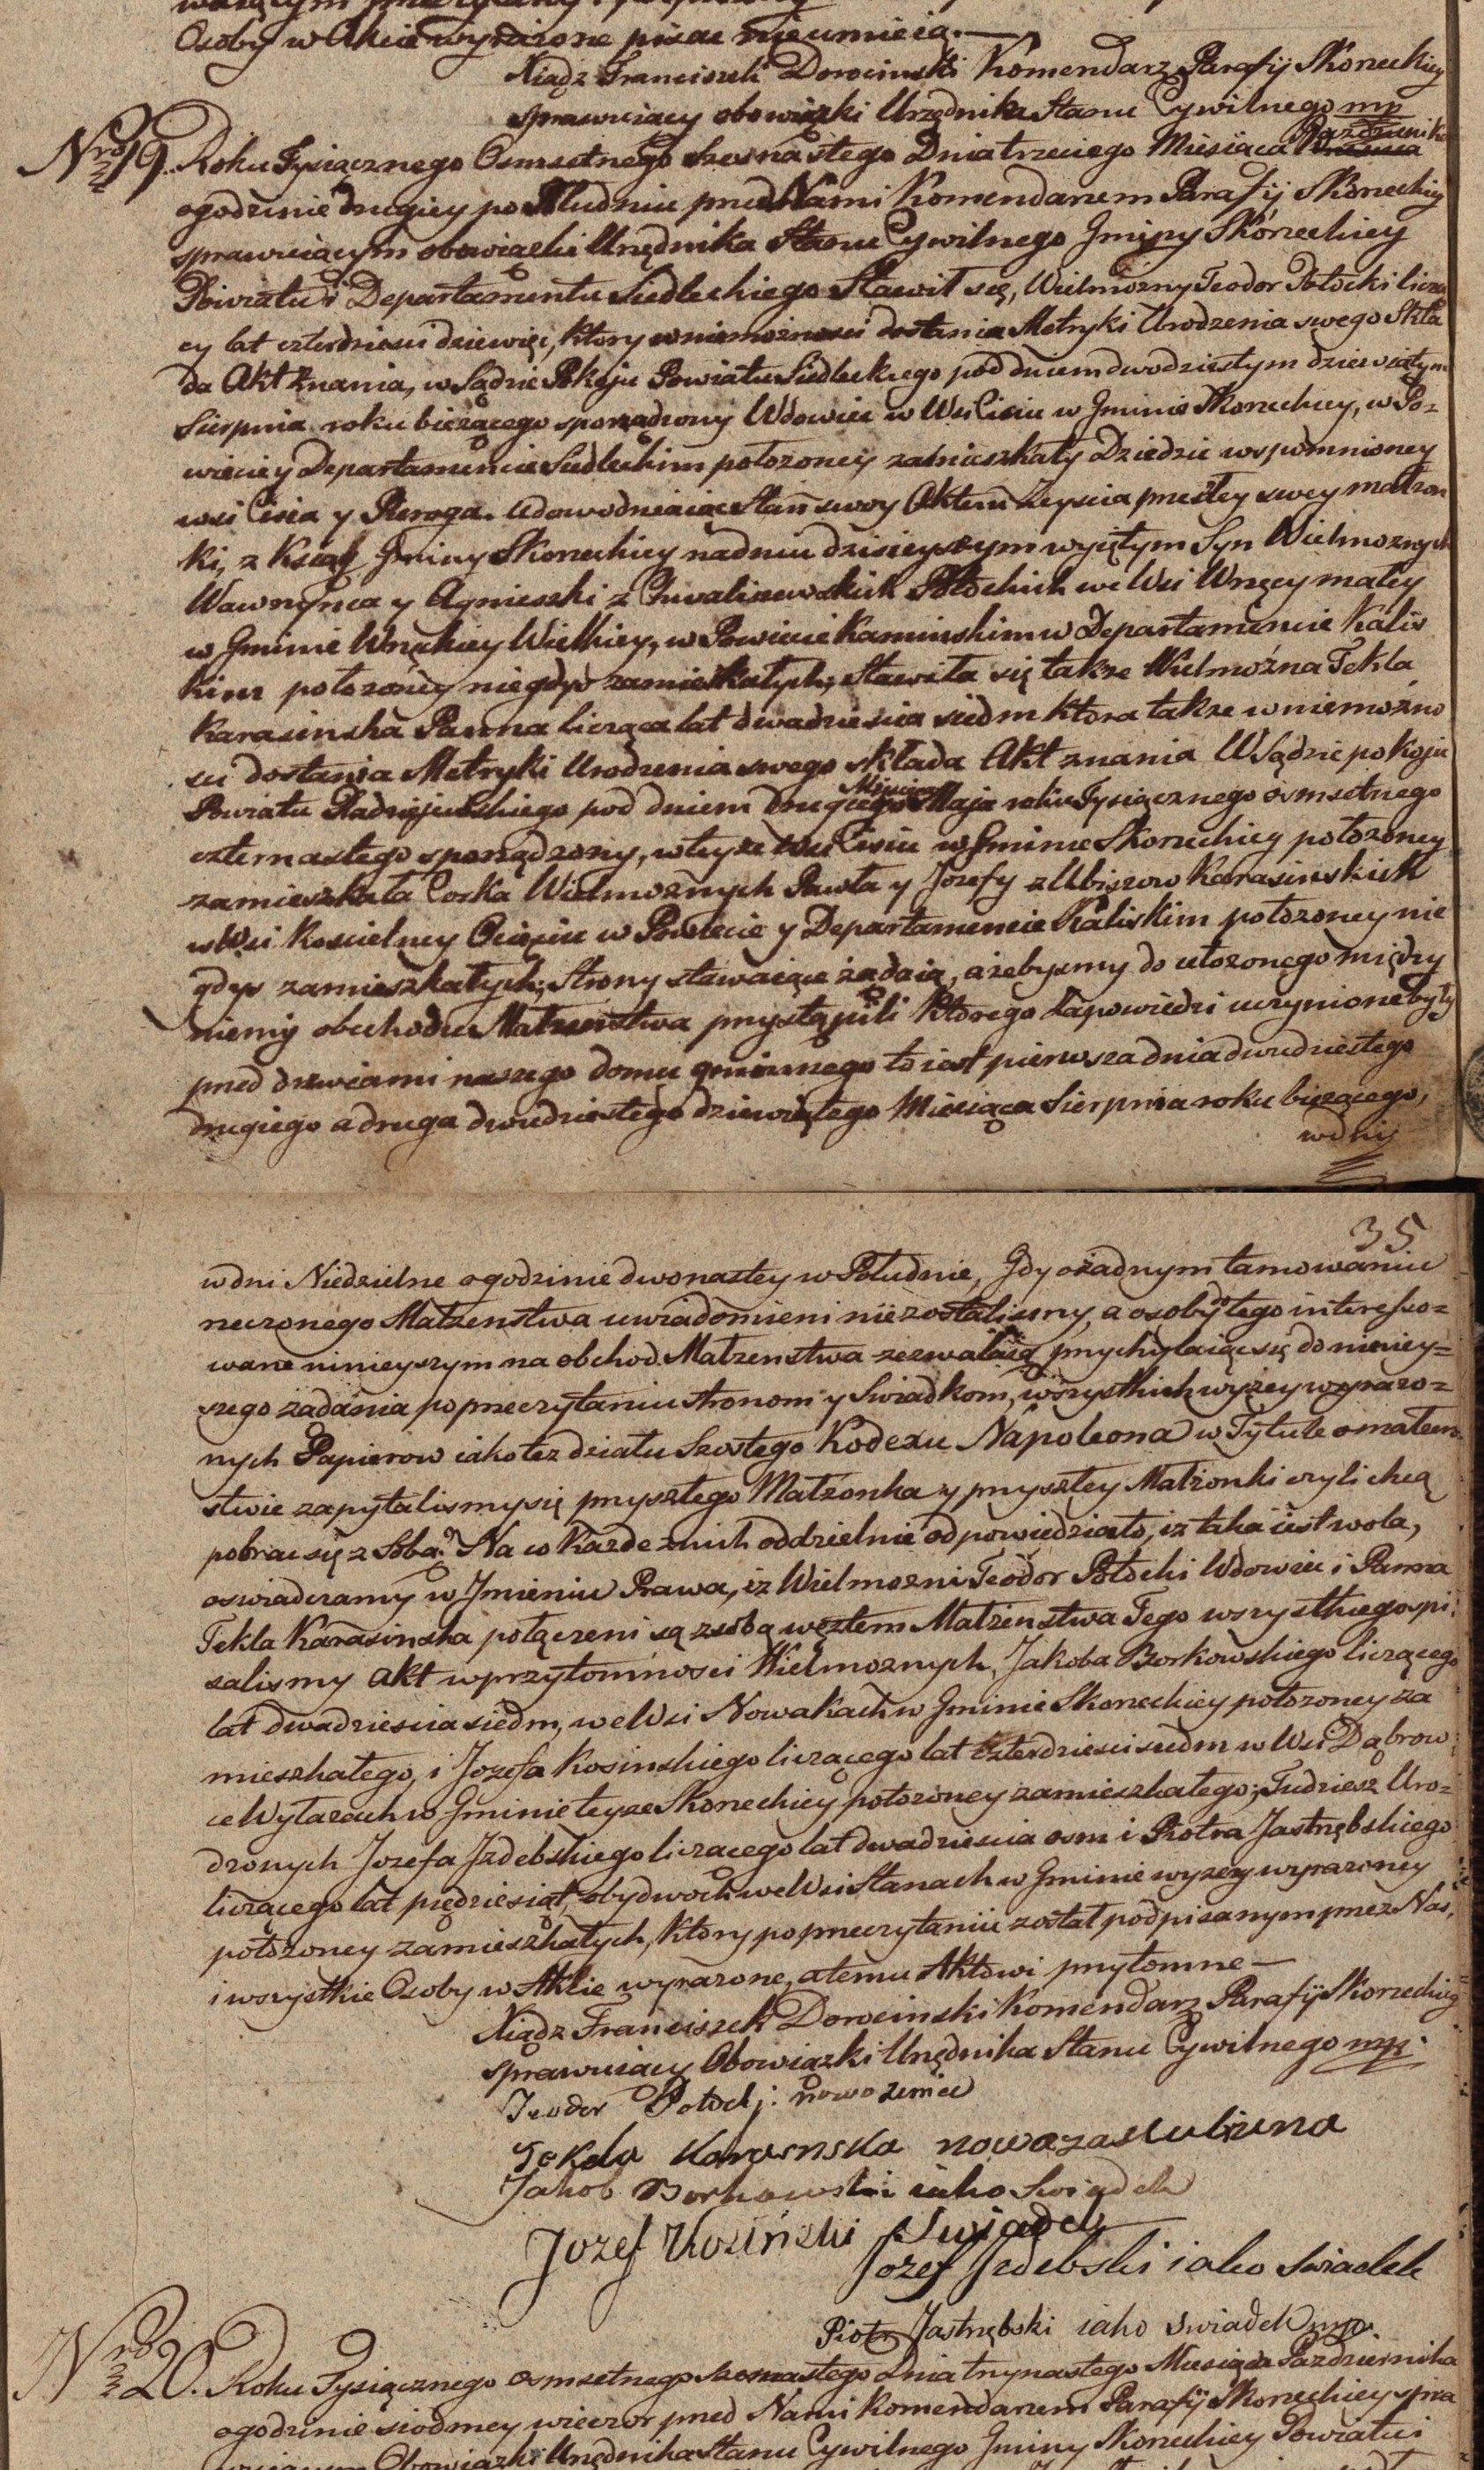 Osoby w Akcie wyrażone pisac nieumieią.—
Xiądz Franciszek Dorocinski Komendarz Parafij Skoreckiey
sprawuiący obowiązki Urzędnika Stanu Cywilnego mp
Nro 19. Roku Tysiącznego Osmsetnego szesnastego Dnia trzeciego Miesiąca Pazdziernika
ogodzinie drugiey po Południu przed Nami Komendarzem Parafij Skoreckiey
sprawuiącym obowiązki Urzędnika Stanu Cywilnego Gminy Skórzeckiey
Powiatu i Departamentu Siedleckiego Stawił się, Wielmozny Teodor Potocki licząc
cy lat czterdziesci dziewięc, ktory w niemoznosci dostania Metryki Urodzenia swego Skła
da Akt Znania, w Sądzie Pokoju Powiatu Siedleckiego pod dniem dwodziestym dziewiątym
Sierpnia roku bieżącego sporządzony Wdowiec w Wsi Cisiu w Gminie Skoreckiey, w Po=
wiecie y Departamencie Siedleckim położoney zamieszkały Dziedzic wspomnioney
wsi Cisia y Pieroga. udowodniaiąc Stan swoy Aktem Zeyscia przeszłey swey małzon
ki, z Ksiąg Gminy Skoreckiey nadniu dzisieyszym wyiętym Syn Wielmoznych
Wawrzynca y Agnieszki z Chwaliszewskich Potockich we Wsi Wrzący małey
w Gminie Wrzckiey Wielkiey, w Powiecie Kaminskim w Departamencie Kalis
kim położoney niegdys zamieszkałych; Stawiła się takze Wielmożna Tekla
Karasinska Panna licząca lat dwadziescia siedm ktora takze w niemozno
sci dostania Metryki Urodzenia swego składa Akt znania W Sądzie pokoju
Powiatu Radziejewskiego pod dniem drugiego Miesiąca Maja roku Tysiącznego osmsetnego
czternastego sporządzony, w teyze Wsi Cisiu w Gminie Skoreckiey położoney
zamieszkała Corka Wielmożnych Pawła y Jozefy z Ubiszow Karasinskich
w Wsi Koscielney Ociąziu w Powiecie y Departamencie Kaliskim położoney nie
gdys zamieszkałych; Strony stawaiące żądaią, ażebysmy do ułożonego między
niemi obchodu Małzenstwa przystąpili Ktorego Zapowiedzi uczynione były
przed drzwiami naszego domu gminnego to iest pierwsza dnia dwudziestego
drugiego a druga dwudziestego dziewiątego Miesiąca Sierpnia roku bieżącego,
w dni
35
w dni Niedzielne ogodzinie dwonastey w Południe, Gdy ożadnym tamowaniu
rzeczonego Małzenstwa uwiadomieni nie zostalismy, a osoby do tego interesso=
wane ninieyszym na obchod Małzenstwa zezwalaią przychylaiąc się do ninie­y=
szego żądania po przeczytaniu stronom y Swiadkom, wszystkich wyżey wyrazo=
nych Papierow iako tez działu Szostego Kodexu Napoleona w Tytule o małzen
stwie zapytalismy się przyszłego Małzonka y przyszłey Małzonki czyli chcą
pobrac się z Sobą? Na co Kazde z nich oddzielnie odpowiedziało; iz taka iest wola,
oswiadczamy w Jmieniu Prawa, iz Wielmozni Teodor Potocki Wdowiec i Panna
Tekla Karasinska połączeni są z sobą węzłem Małzenstwa Tego wszystkiego spi
salismy Akt w przytomnosci Wielmoznych, Jakoba Borkowskiego liczącego
lat dwadziescia siedm, we Wsi Nowakach w Gminie Skoreckiey położoney za
mieszkałego, i Jozefa Kosinskiego liczącego lat czterdziesci siedm w Wsi Dąbrow
ce Wyłazach w Gminie teyze Skoreckiey położoney zamieszkałego; Tudziesz Uro=
dzonych Jozefa Jzdebskiego liczącego lat dwadziescia osm i Piotra Jastrzębskiego
liczącego lat pięcdziesiąt, obydwoch we Wsi Stanach w Gminie wyzey wyrazoney
położoney zamieszkałych, Ktory po przeczytaniu został podpisanym przez Nas,
i wszystkie Osoby w Akcie wyrazone, a temu Aktowi przytomne—
Xiądz Franciszek Dorocinski Komendarz Parafij Skorzeckiey
sprawuiący Obowiązki Urzędnika Stanu Cywilnego mp.
Teodor Potocki: nowozeniec
Tekla Karasinska nowozaslubiona
Jakob Borkowski iako Swiadek
Jozef Kosiński Swiadek
Jozef Jzdebski iako Swiadek
Piotr Jastrzębski iako swiadek mp.
Nro 20. Roku Tysiącznego osmsetnego szesnastego Dnia trzynastego Miesiąca Pazdziernika
ogodzinie siodmey wieczor przed Nami Komendarzem Parafij Skoreckiey spra
wuiącym Obowiązki Urzędnika Stanu Cywilnego Gminy Skoreckiey Powiatu i